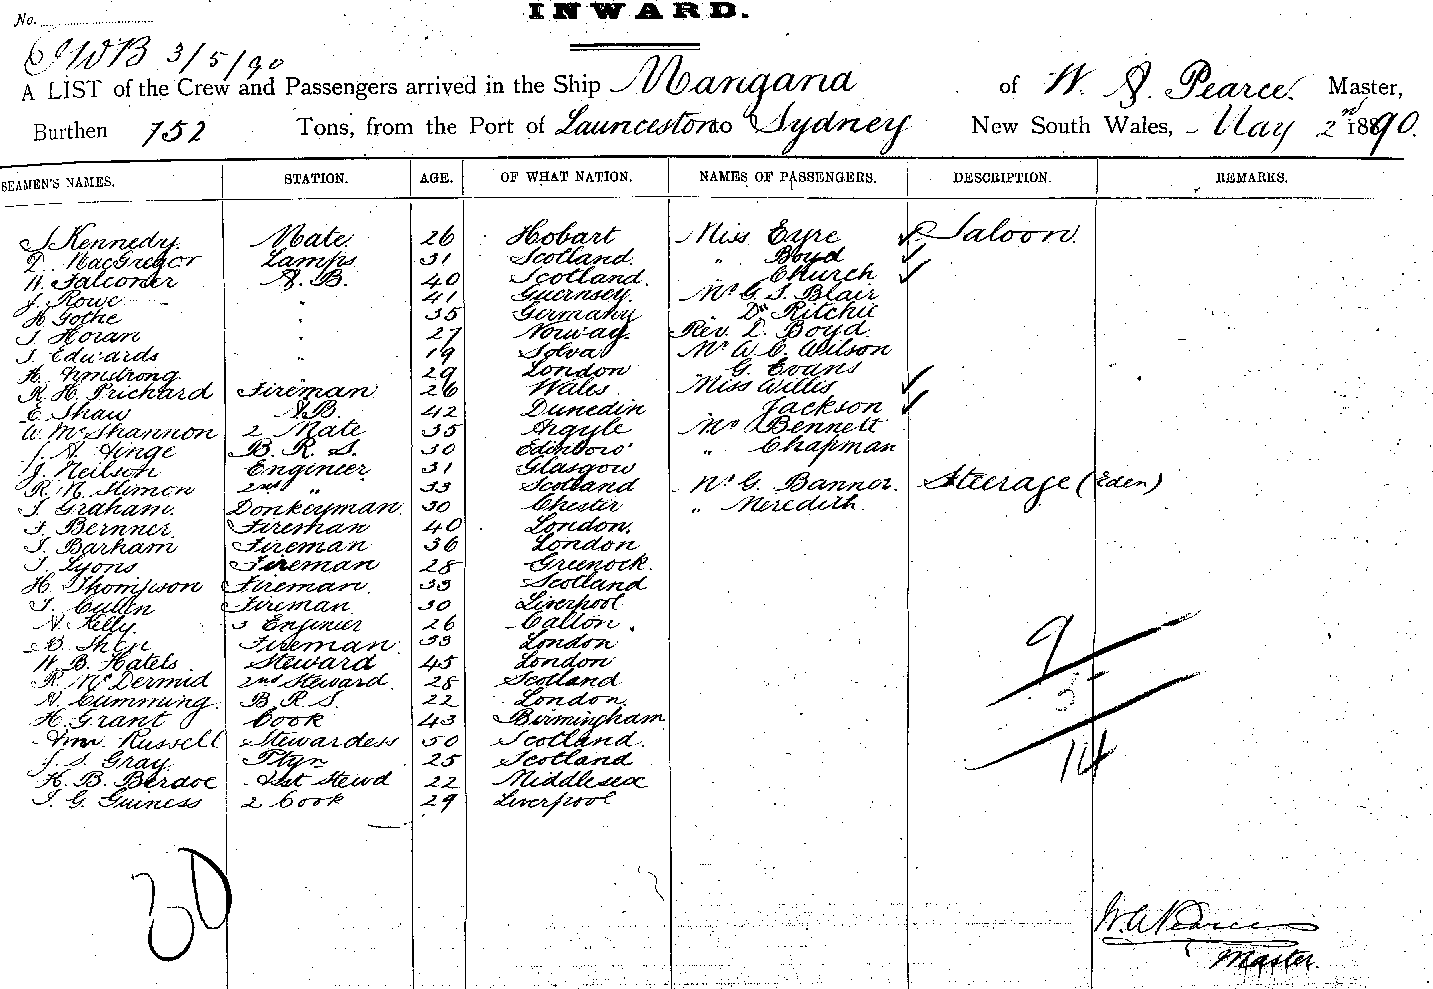 No.
INWARD.
JWB 3/5/90
A LIST of the Crew and Passengers arrived in the Ship Mangana of W. A. Pearce. Master,
Burthen 752 Tons, from the Port of Launceston to Sydney New South Wales, May 2nd 1890.
SEAMEN'S NAMES. STATION. AGE. OF WHAT NATION. NAMES OF PASSENGERS. DESCRIPTION. REMARKS.
J Kennedy. Mate. 26 Hobart Miss Eyre Saloon.
D. MacGregor Lamps 31 Scotland. " Boyd
W. Falconer A. B. 40 Scotland. " Church
J. Rowe " 41 Guernsey. Mr G. S. Blair
H Gothe " 35 Germany " Dr Ritchie
T Horan " 27 Norway. Rev. D. Boyd.
T. Edwards " 19 Solva Mr W. C. Wilson
H. Armstrong 29 London G. Evans
R. H. Prichard Fireman 26 Wales Miss Willis
E. Shaw A.B. 42 Dunedin Jackson
W. McShannon 2 Mate 35 Argyle Mr Bennett
J. A. Hinge B. R. S. 30 Edinboro' " Chapman
J. Neilson Engineer. 31 Glasgow
R. N. Simon 2nd " 33 Scotland Mr G. Banner. Steerage (Eden)
T. Graham. Donkeyman. 30 Chester " Meredith
F. Bernner Fireman 40 London.
T. Barham Fireman 36 London
T. Lyons Fireman 28 Greenock.
H. Thompson Fireman. 33 Scotland
T. Cullen Fireman 30 Liverpool
A. Kelly. 3 Engineer 26 Calton.
B. Fireman. 33 London
W. B. Hatels. Steward 45 London
R. McDermid 2nd Steward. 28 Scotland
A. Cumming. B.R.S. 22 London.
H. Grant Cook 43 Birmingham
Ann. Russell Stewardess 50 Scotland.
J. S. Gray. Ptyn 25 Scotland
H. B. Berdoe Asst Stewd 22 Middlesex
T. G. Guiness 2 Cook 29 Liverpool
9
5
14
30
W. A. Pearce
Master.